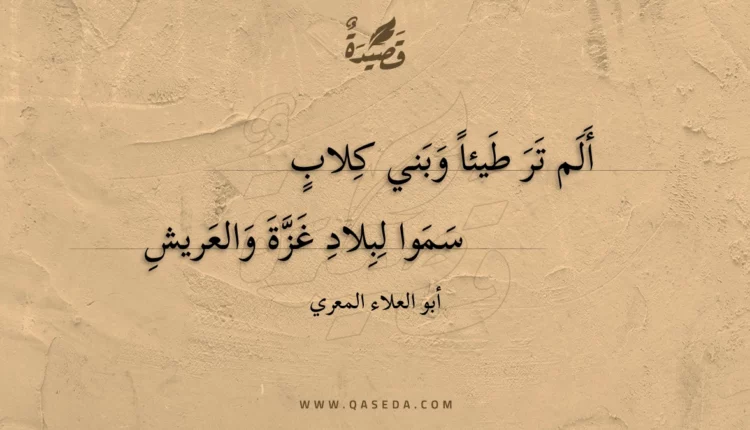 قَصِيْدَةٌ
أَلَم تَرَ طَيئاً وَبَني كِلابٍ
سَمَوا لِبِلادِ غَزَّةَ وَالعَريشِ
أبو العلاء المعري
WWW.QASEDA.COM